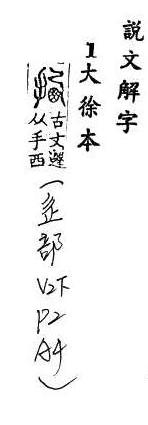 說文解字
1大徐本
古文遷
从手西
(辵部 V2下 P2 A4)